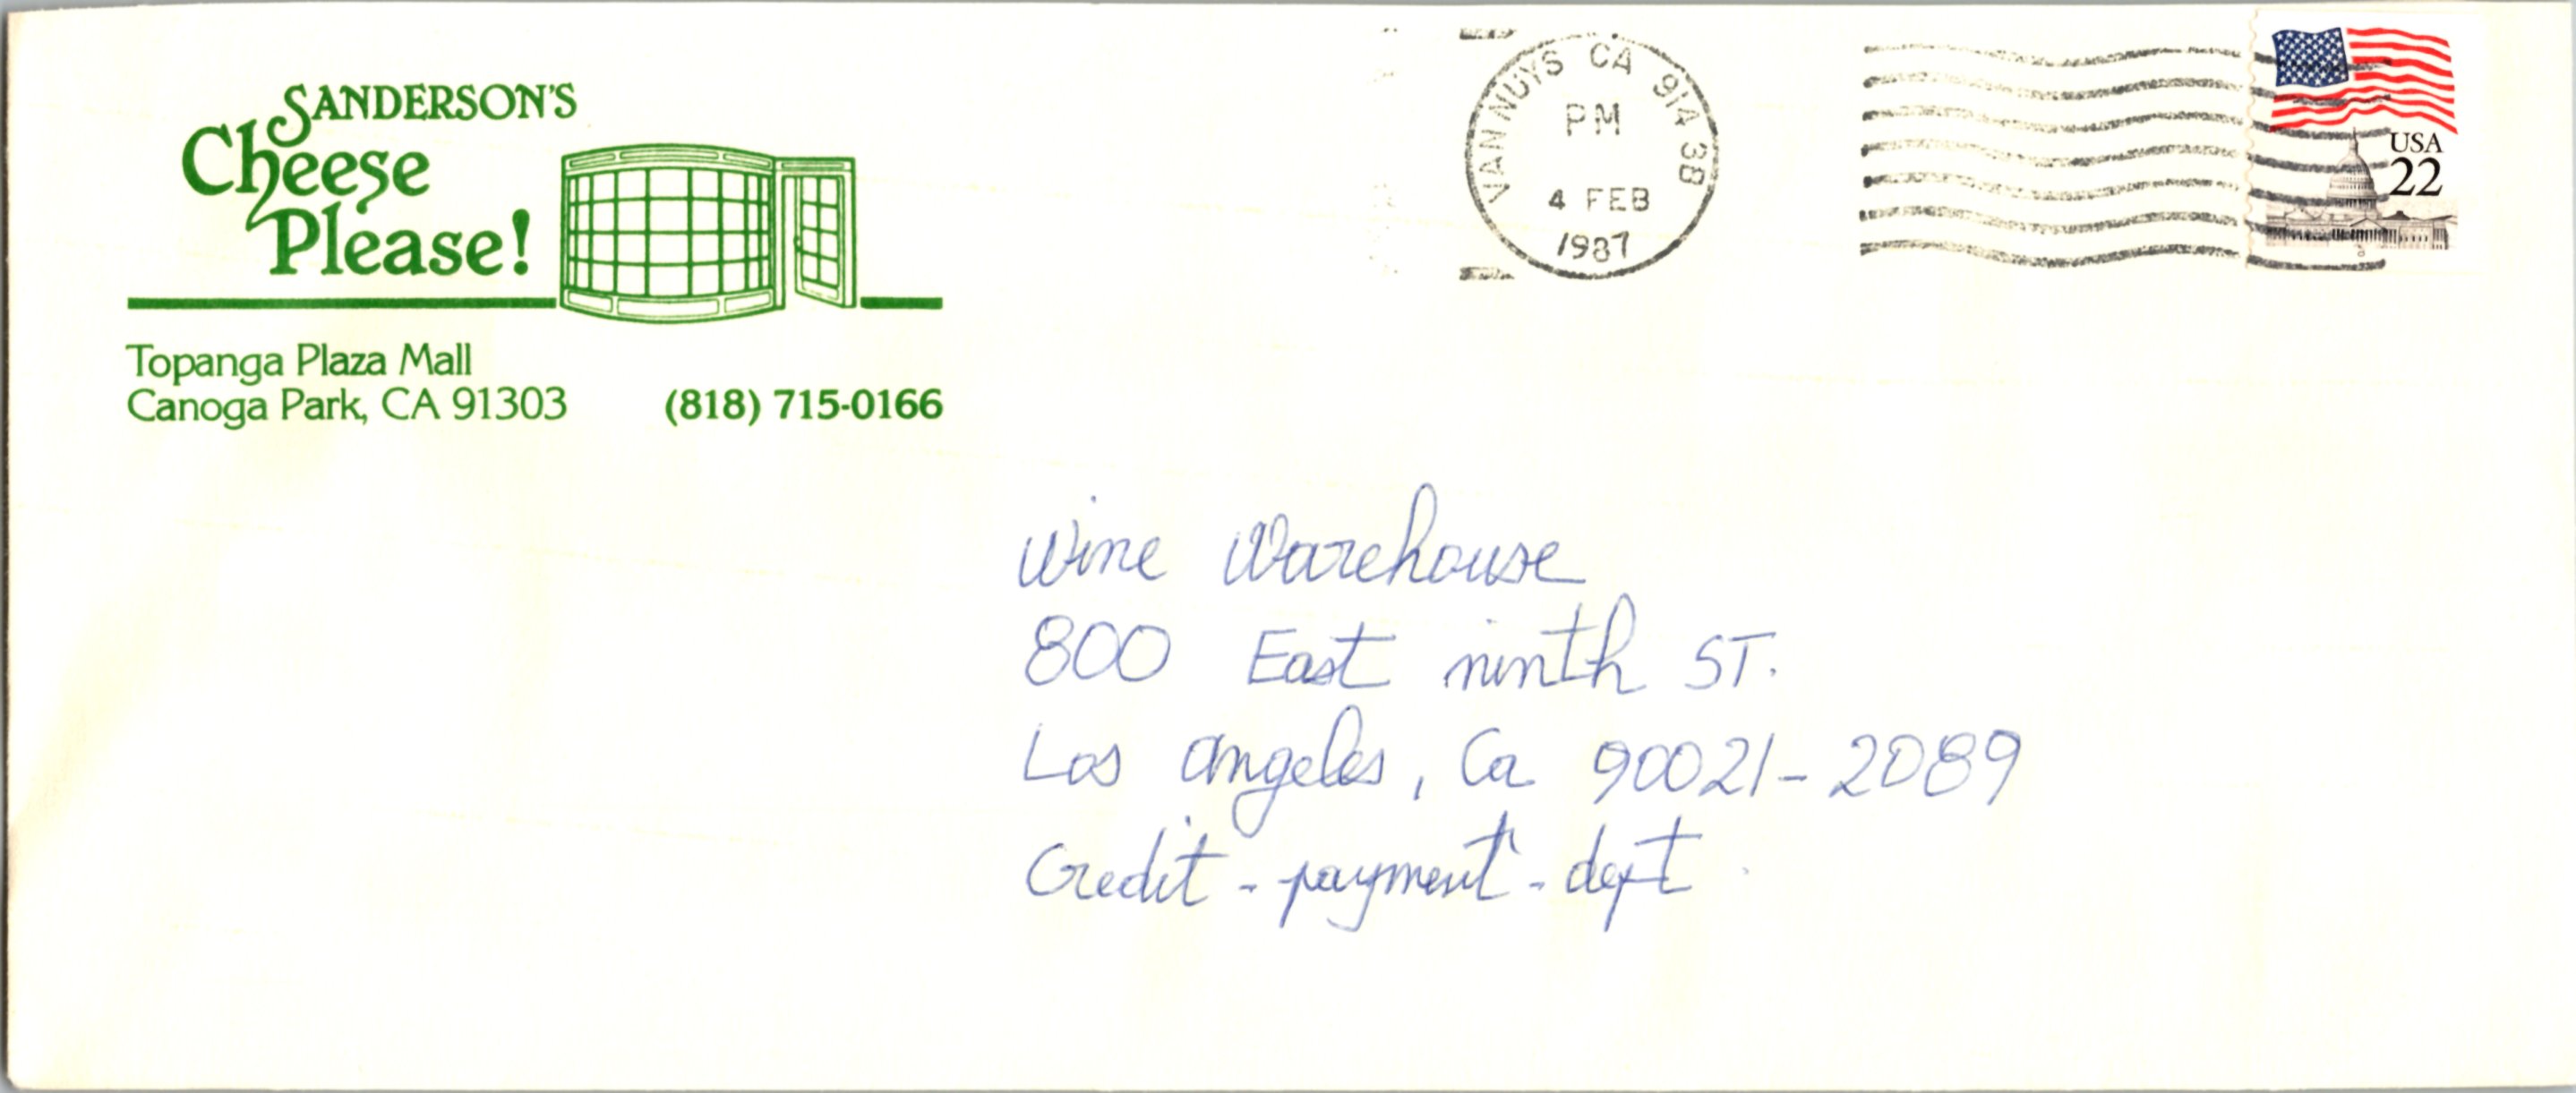 SANDERSON'S
Cheese
Please!
Topanga Plaza Mall
Canoga Park, CA 91303 (818) 715-0166
VAN NUYS CA 914 3B
PM
4 FEB
1987
USA
22
Wine Warehouse
800 East ninth ST.
Los Angeles, Ca 90021-2089
Credit - payment - dept